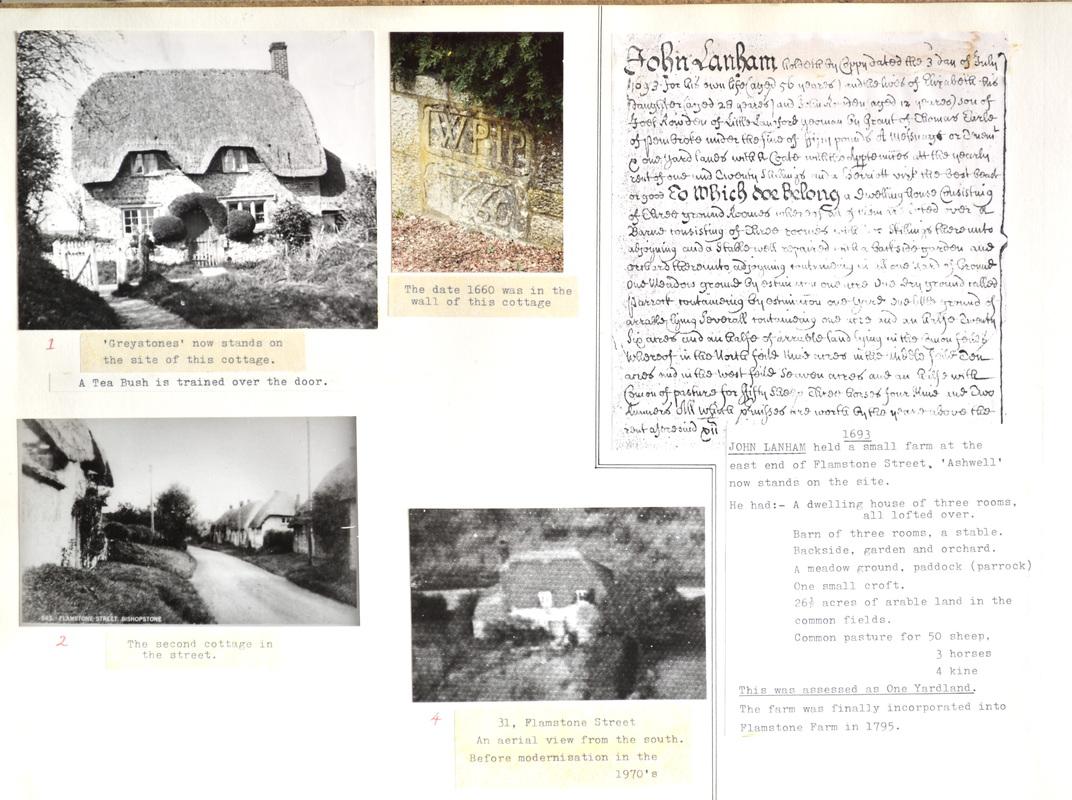 John Lanham holdeth by Coppy dated the 3 day of July
1693 for his own life (aged 56 yeares) and the lives of Elizabeth his
Daughter (aged 28 yeares) and John Rowden aged 12 yeares) son of
Joel Rowden of Little Langford yeoman by Grant of Thomas Earle
of Pembroke under the fine of pounds A Messuage or Tenem
& one yard lands with the att the yearly
rent of one and Twenty Shillings and a herriott vizt the best beast
or good To Which doe Belong a Dwelling house Consisting
of Three ground Roomes of them lofted over A
Barne consisting of Three roomes with thereunto
adjoyning and a Stable well repaired with a backside garden and
orchard thereunto adjoyning containing in all one yard of Ground
One Meadow ground by estimation one acre One Dry ground called
Parrock containing by estimation one yard One little ground of
arrable lying Severall containing one acre and an halfe Twenty
Six acres and an halfe of arrable land lying in the Comon feilds
Whereof in the North feild Nine acres in the Middle feild Ten
acres and in the West feild Seaven acres and an halfe with
Comon of pasture for fifty Sheep Three horses four Kine and Two
All which p'misses are worth by the yeare above the
rent aforesaid xii
WPIP
1660
The date 1660 was in the
wall of this cottage
1
'Greystones' now stands on
the site of this cottage.
A Tea Bush is trained over the door.
FLAMSTONE STREET, BISHOPSTONE
2
The second cottage in
the street.
4
31, Flamstone Street
An aerial view from the south.
Before modernisation in the
1970's
1693
JOHN LANHAM held a small farm at the
east end of Flamstone Street, 'Ashwell'
now stands on the site.
He had:- A dwelling house of three rooms,
all lofted over.
Barn of three rooms, a stable.
Backside, garden and orchard.
A meadow ground, paddock (parrock)
One small croft.
26½ acres of arable land in the
common fields.
Common pasture for 50 sheep,
3 horses
4 kine
This was assessed as One Yardland.
The farm was finally incorporated into
Flamstone Farm in 1795.